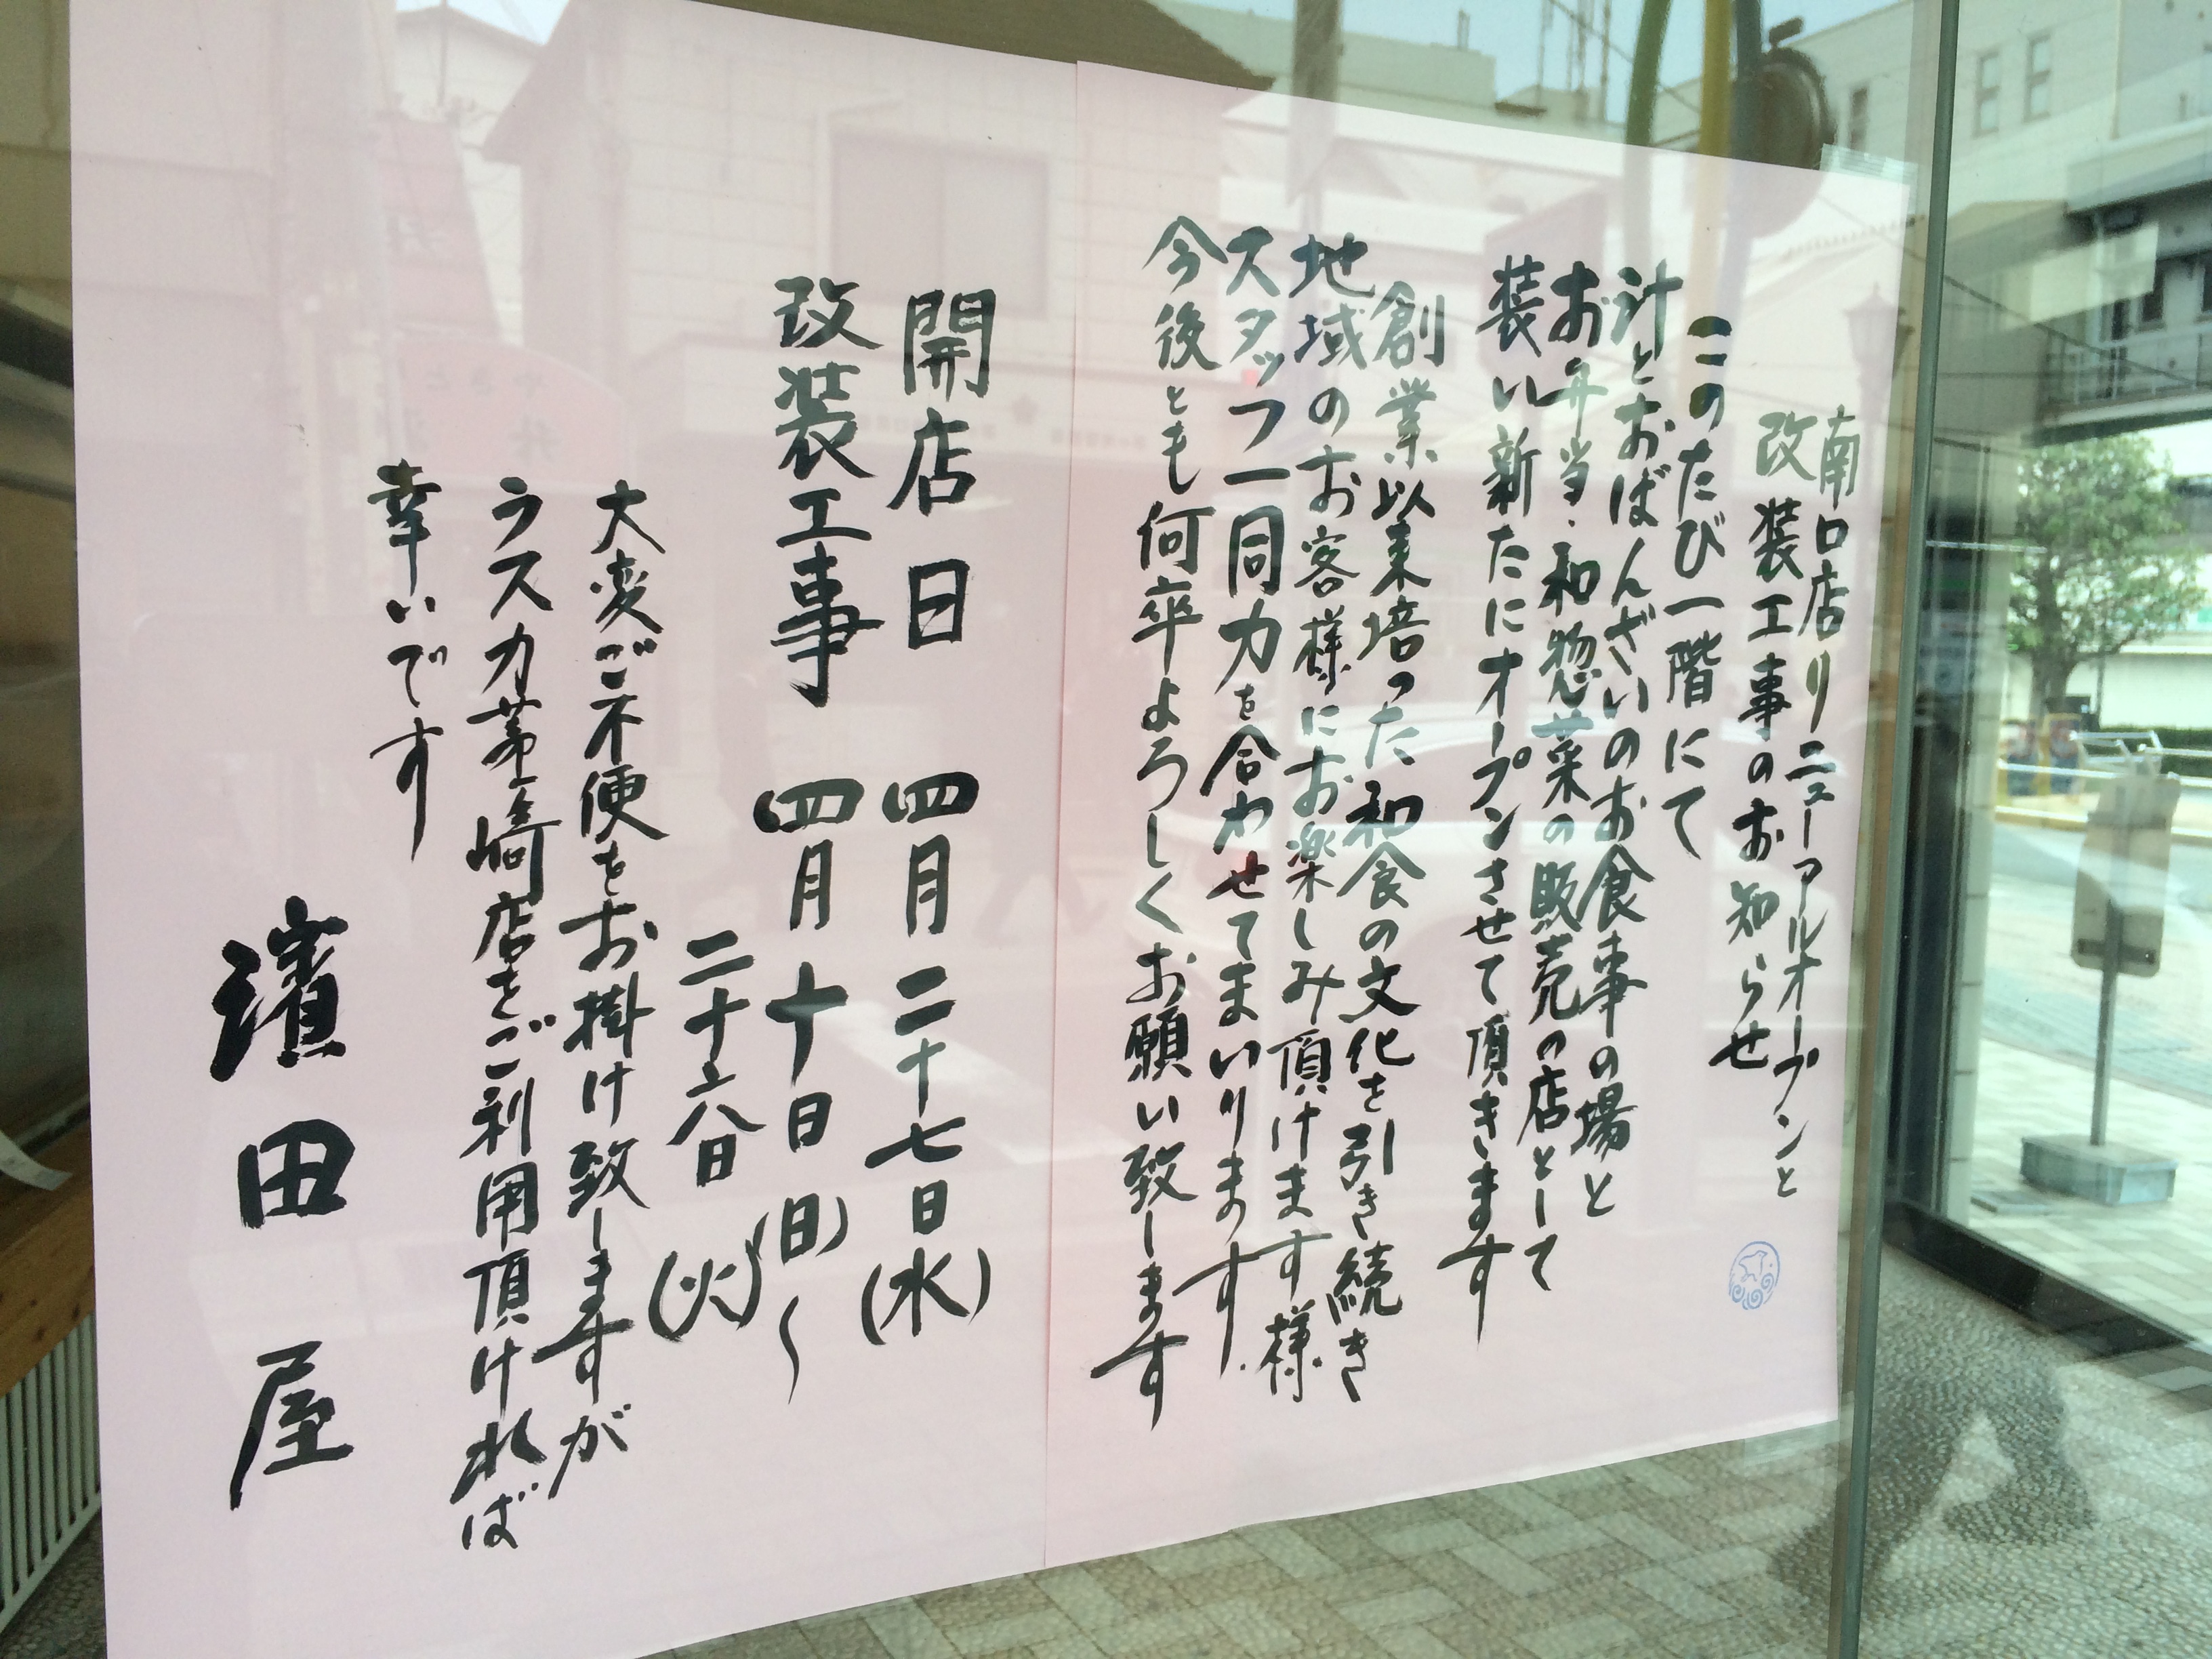 南口店リニューアルオープンと
改装工事のお知らせ
このたび一階にて
汁とおばんざいのお食事の場と
お弁当・和惣菜の販売の店として
装い新たにオープンさせて頂きます
創業以来培った和食の文化を引き続き
地域のお客様にお楽しみ頂けます様
スタッフ一同力を合わせてまいります.
今後とも何卒よろしくお願い致します
開店日 四月二十七日(水)
改装工事 四月十日(日)〜
二十六日(火)
大変ご不便をお掛け致しますが
ラスカ茅ヶ崎店をご利用頂ければ
幸いです
濱田屋